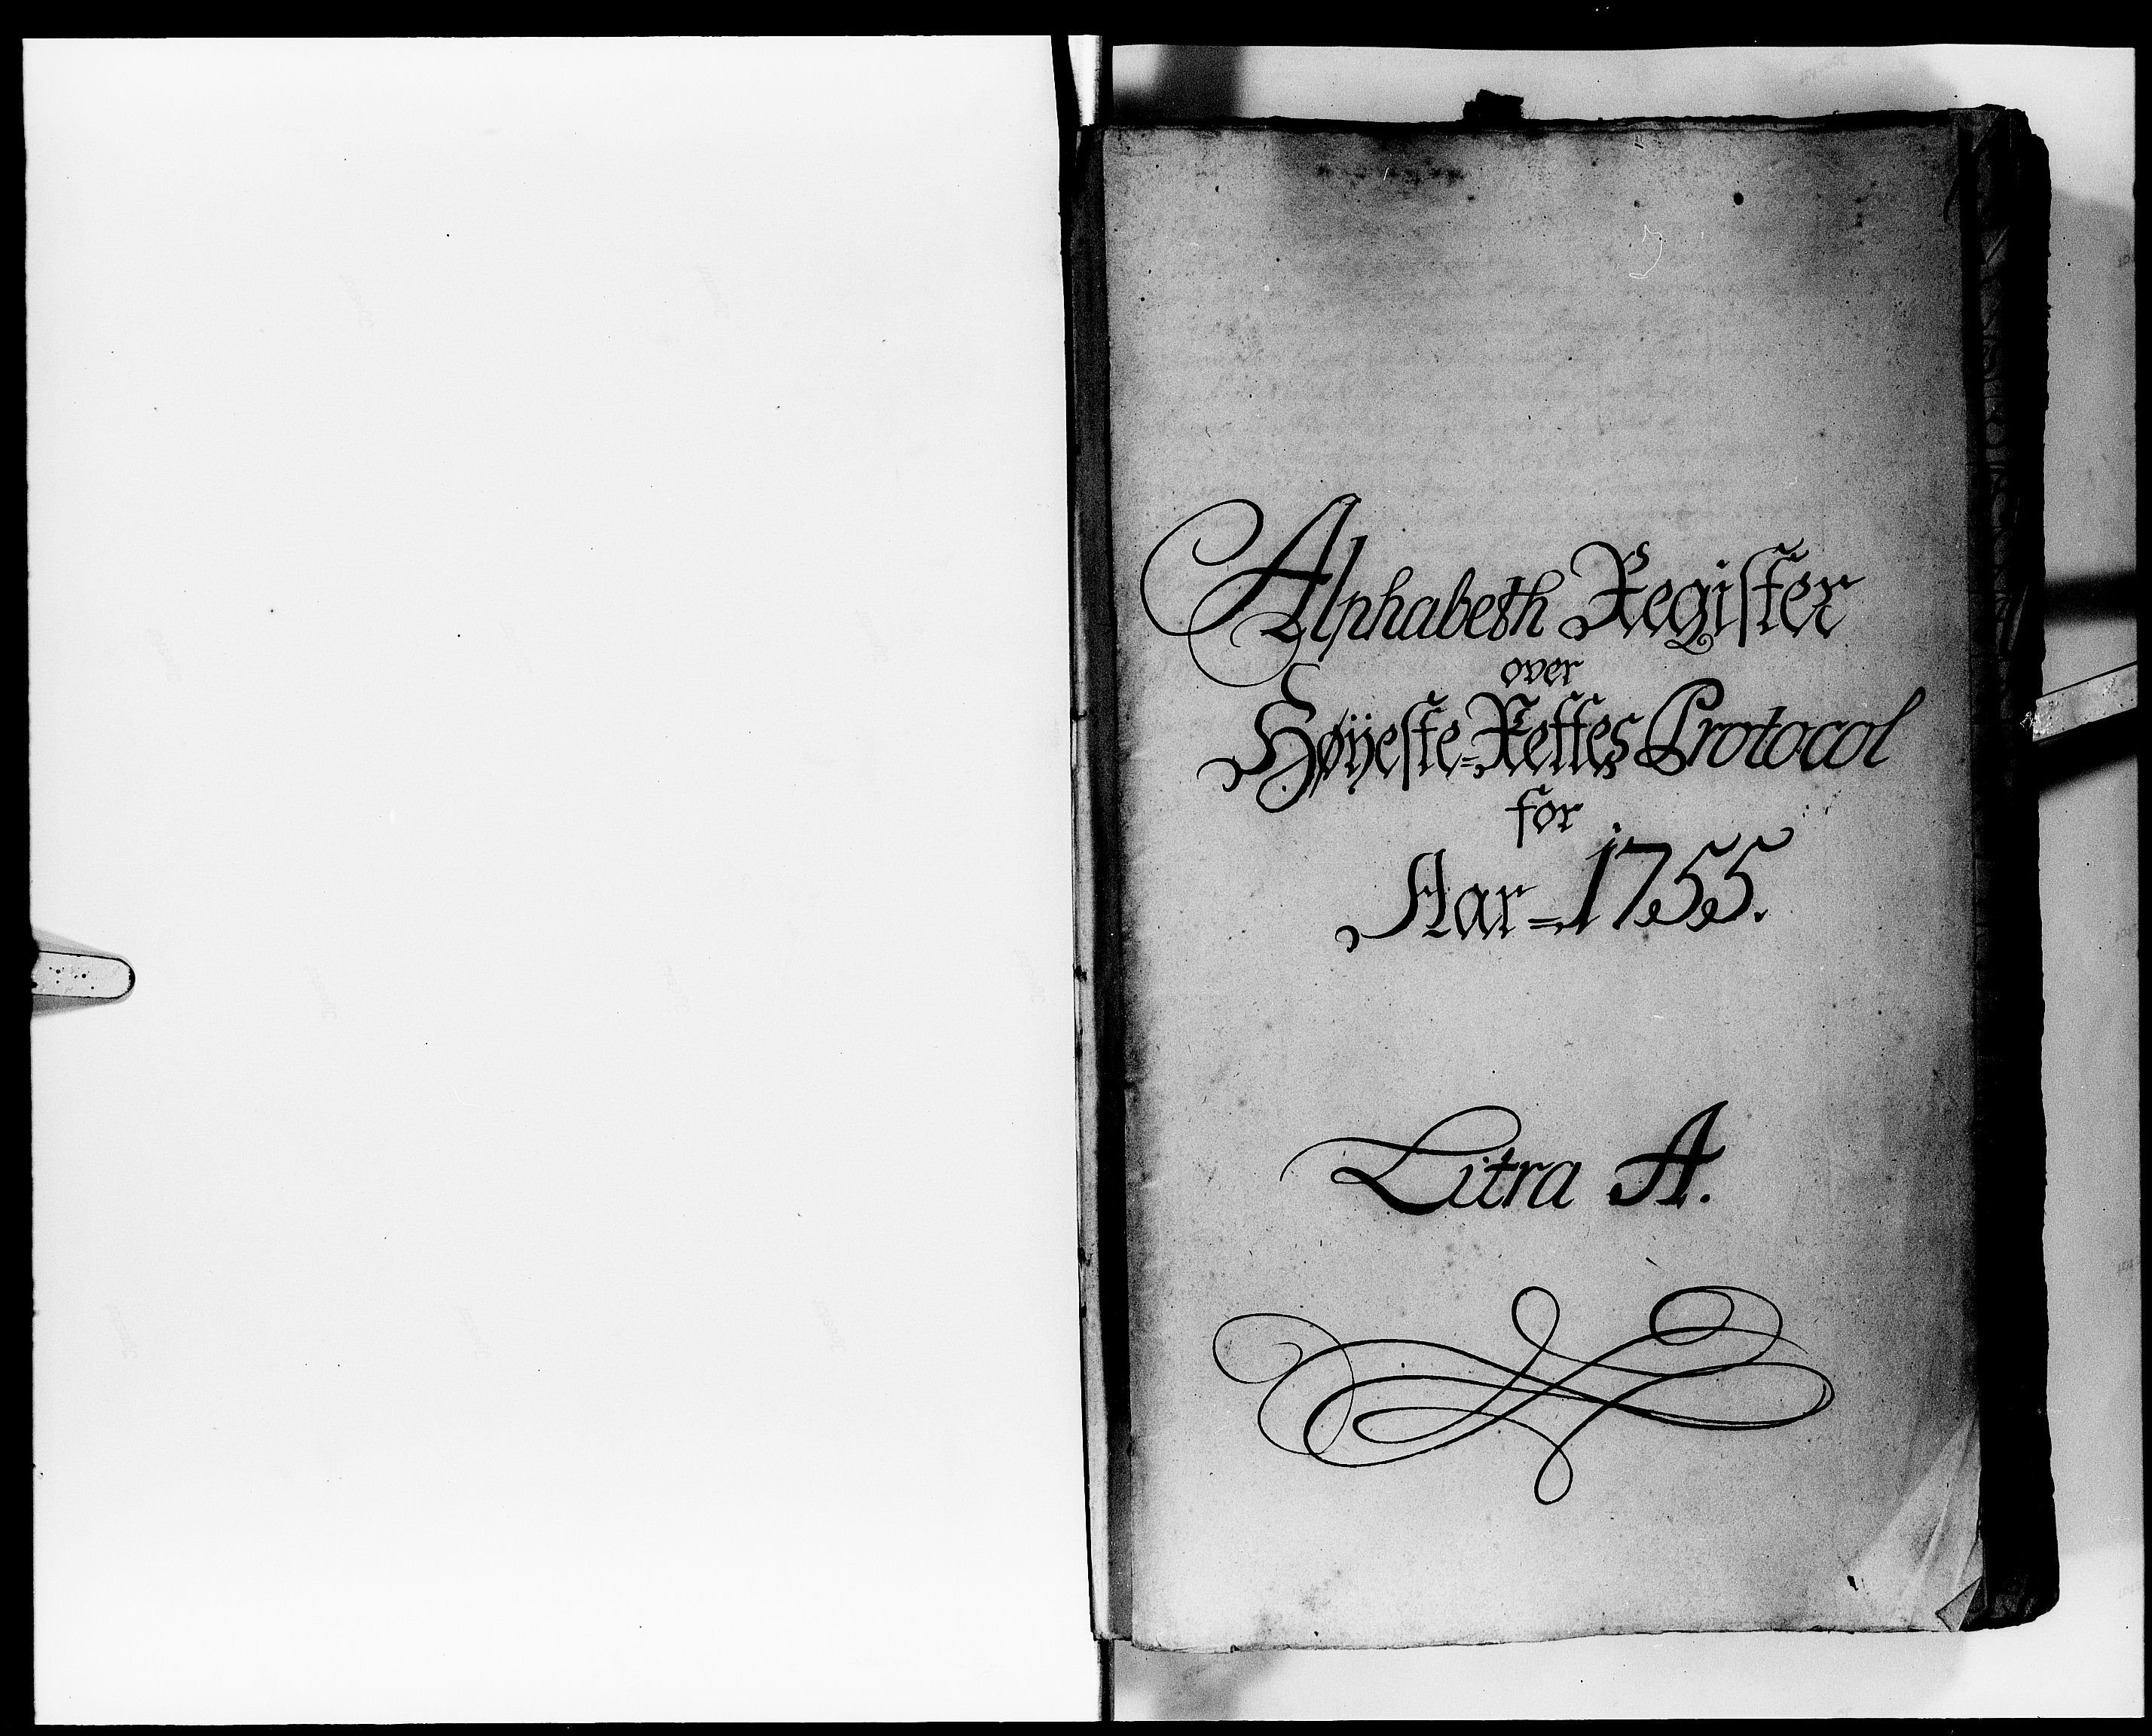 Alphabeth Register
over
Høÿeste-Rettes Protocol
for
Aar-1755.
Litra A.